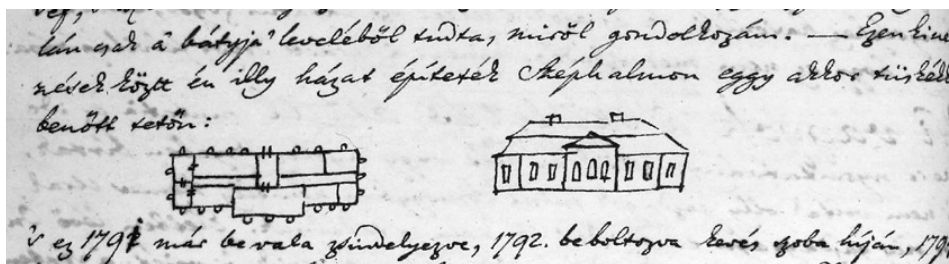 lán csak a' bátyja' leveléből tudta, miről gondolkozám. — Ezen kine
zések között én illy házat építeték Széphalmon eggy akkor tüskék
benőtt tetőn:
's ez 1791 már be vala zsindelyezve, 1792. beboltozva kevés szoba híján, 179